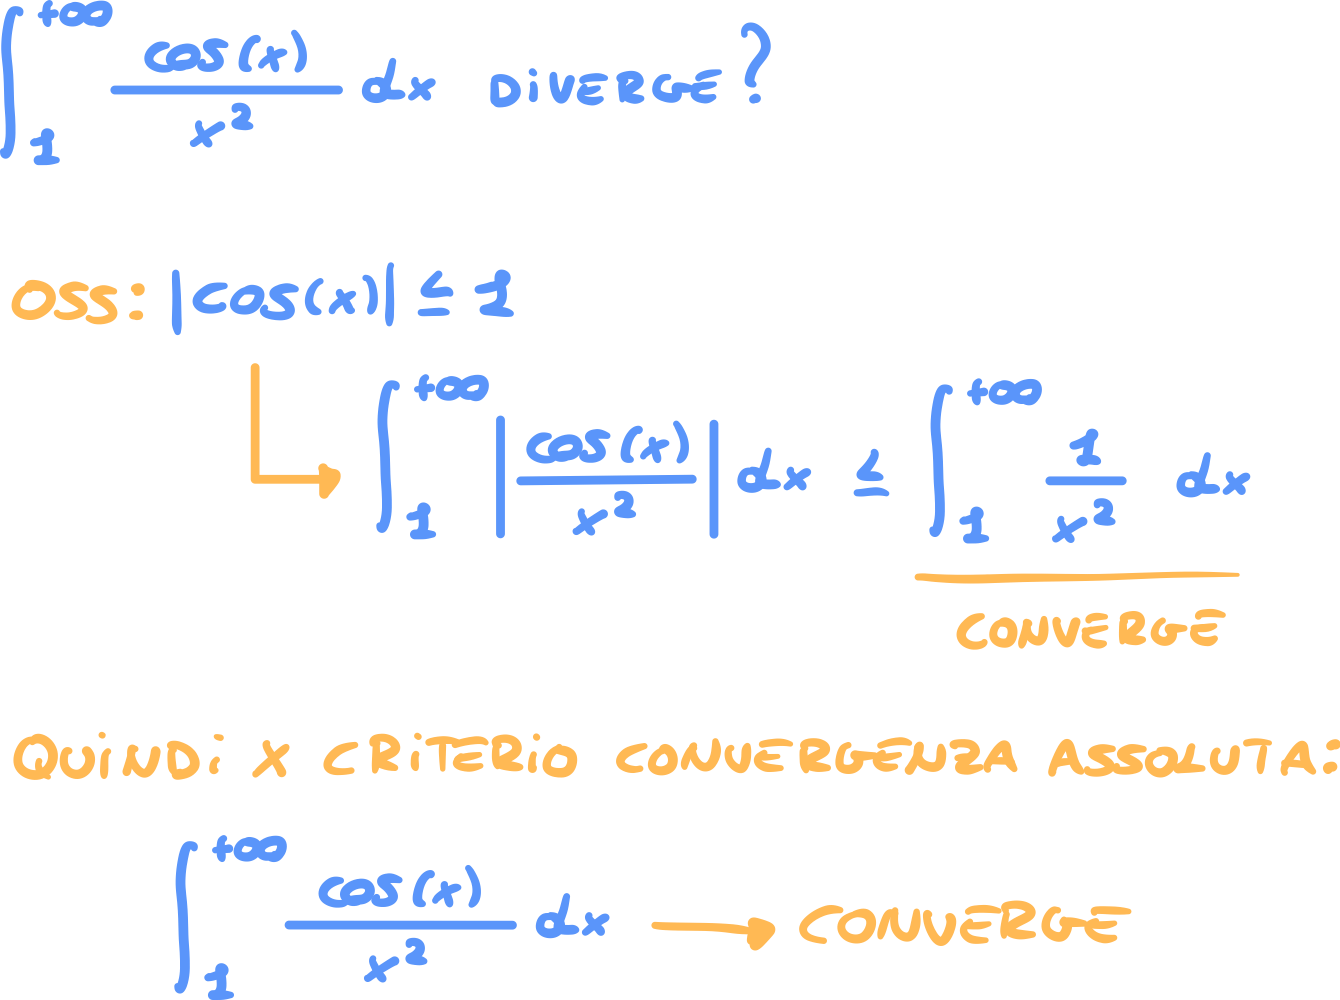 ∫₁^{+∞} cos(x)/x² dx DiVERGE?
OSS: |cos(x)| ≤ 1
∫₁^{+∞} |cos(x)/x²| dx ≤ ∫₁^{+∞} 1/x² dx
CONVERGE
QUiNDi X CRiTERiO CONVERGENZA ASSOLUTA:
∫₁^{+∞} cos(x)/x² dx → CONVERGE